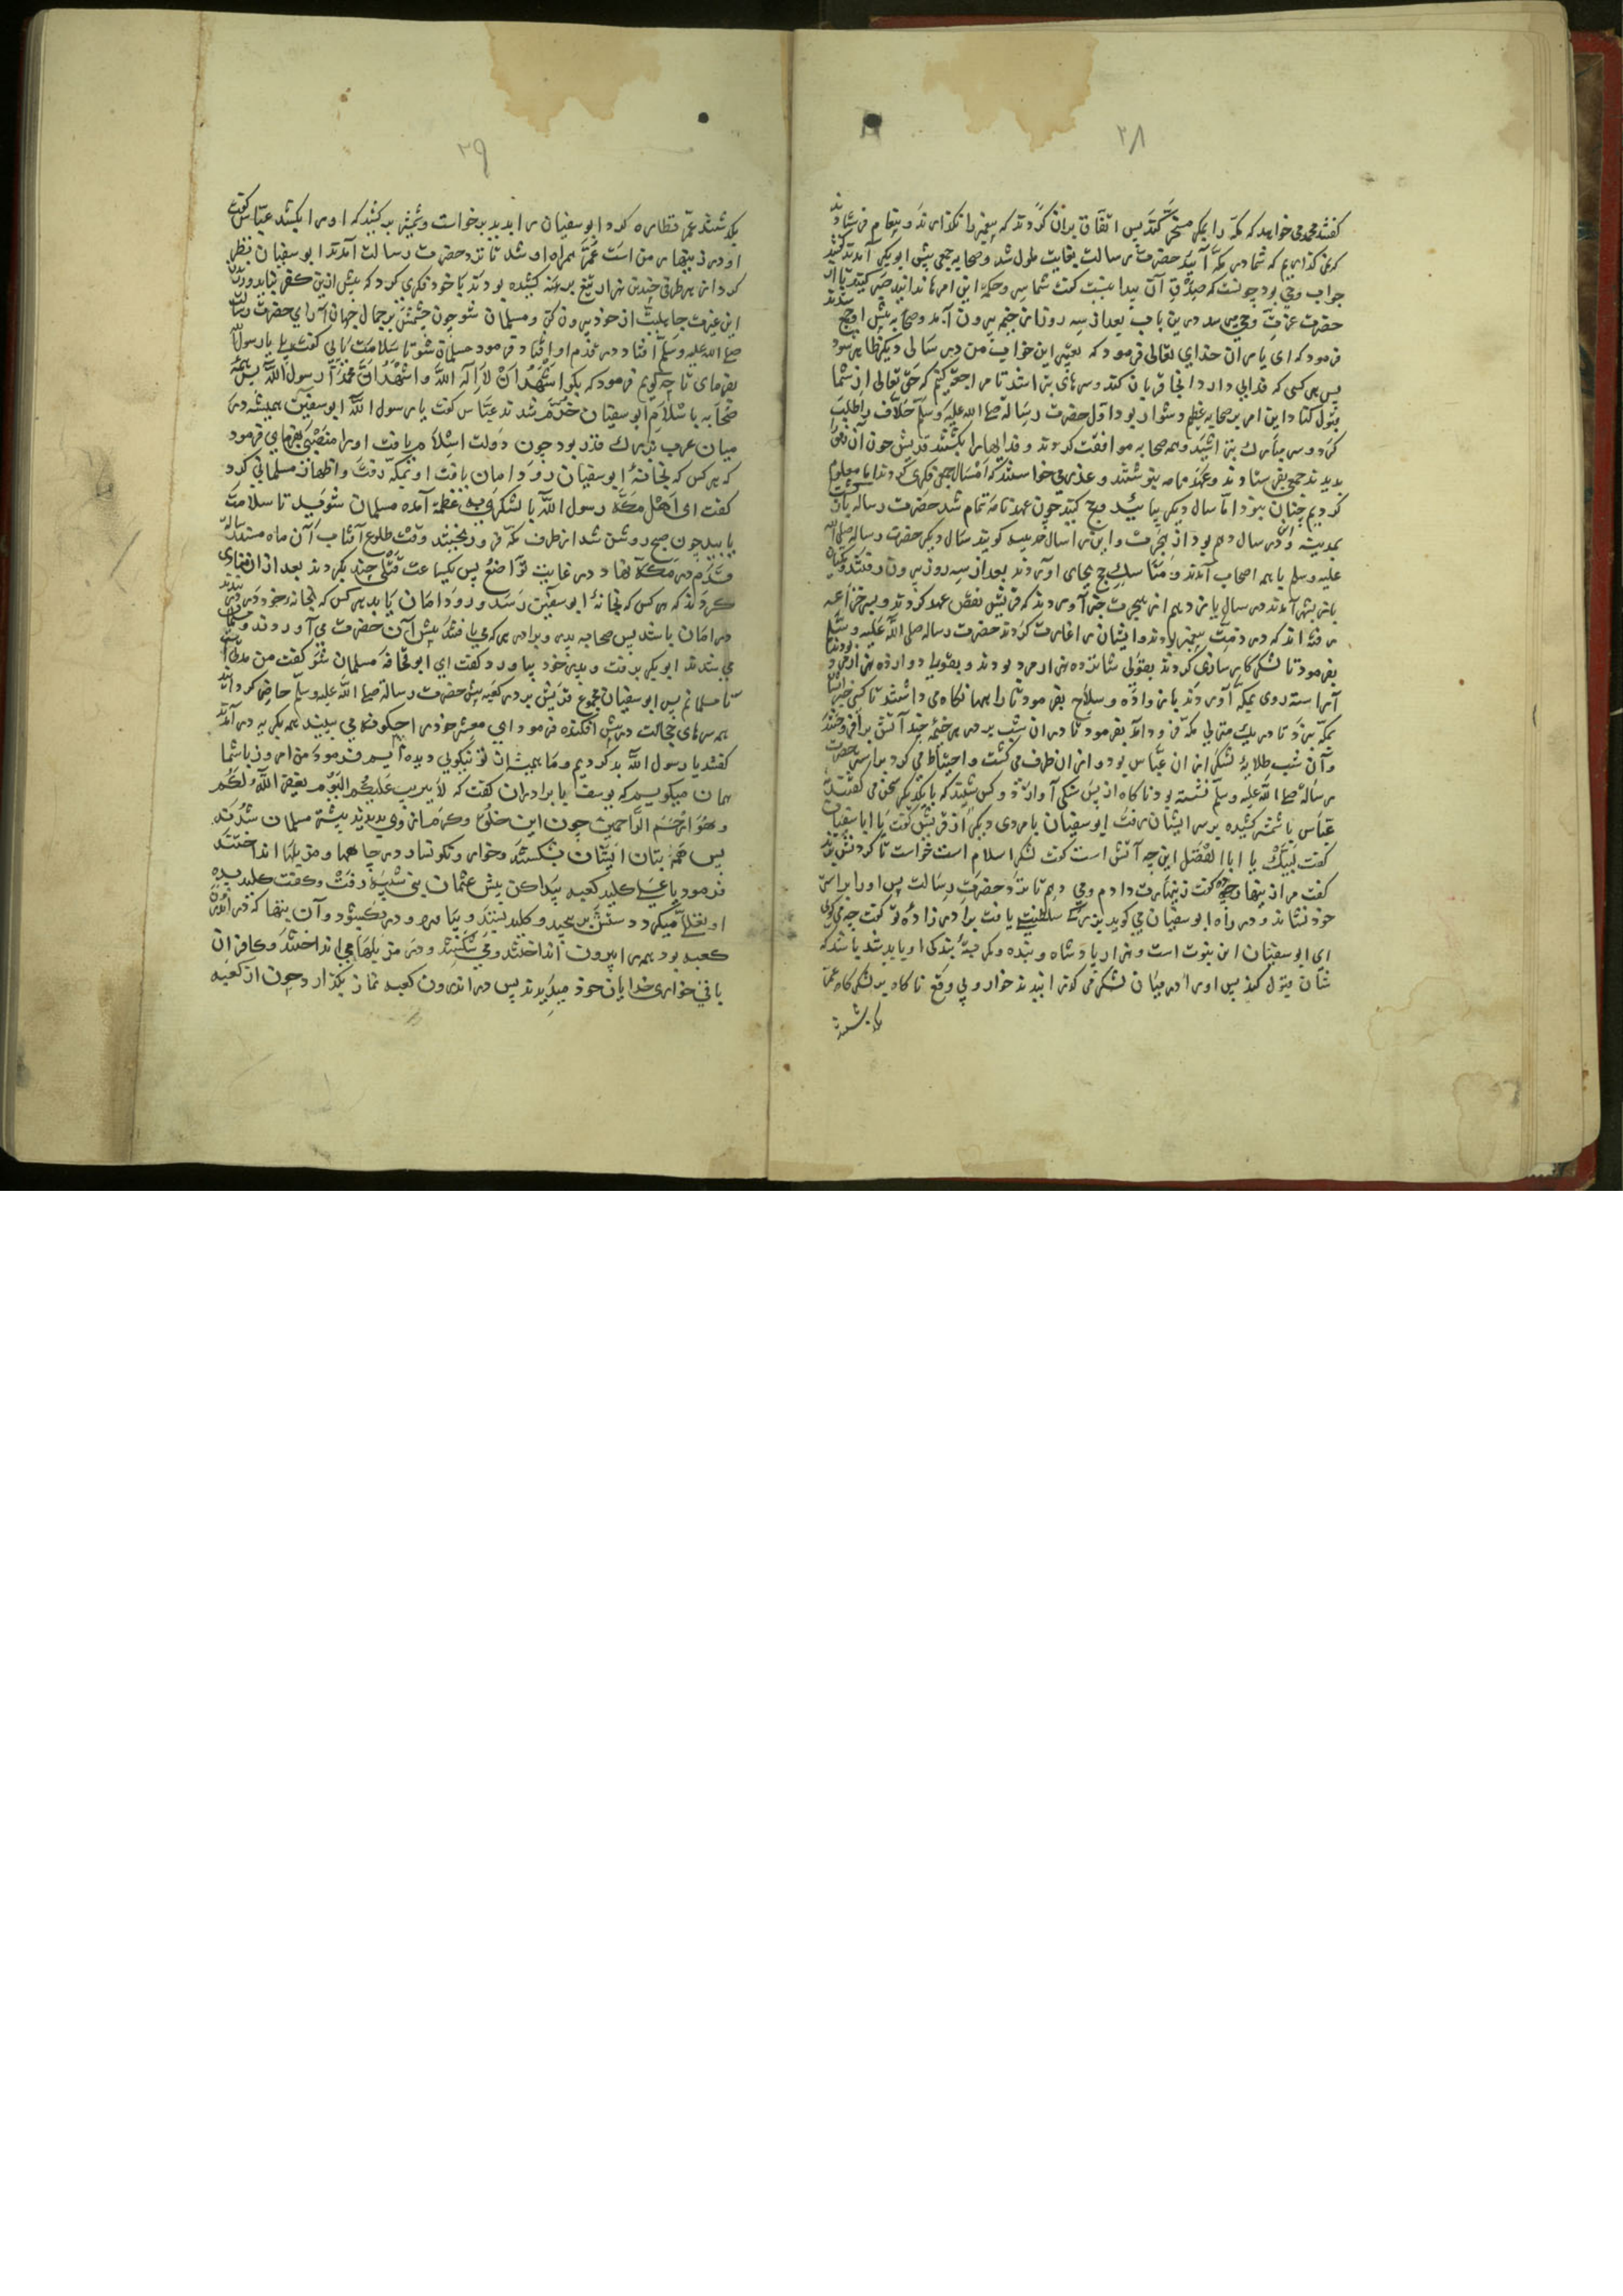 ۲۸
کفتند محمد می خواهد که مکه را بمکر مسخر کند پس اتفاق بران کردند که پیغمبر را نکذارند و پیغام فرستادند
که نمی کذاریم که شما در مکه آیید حضرت رسالت بغایت ملول شد و صحابه جمعی پیش ابو بکر آمدند کفتند
جواب وحی بود چونست که صدق آن پیدا نیست کفت شما سر و حکمة این امرها ندانید صبر کنید تا از
حضرت عزت وحی رسد درین باب بعد از سه روز از خیمه بیرون آمد و صحابه پیش او جمع شدند
فرمود که ای یاران خدای تعالی فرمود که تعبیر این خواب من در سالی دیکر ظاهر شود
پس هر کسی که فدایی دارد اینجا قربان کند و سرهای بتراشند تا مراجعت کنیم که حق تعالی از شما
قبول کناد این امر بر صحابه عظیم دشوار بود اول حضرت رسالة صلی الله علیه وسلم حلاق را طلب
کرد و سر مبارک بتراشید و همه صحابه موافقت کردند و فدایها را بکشتند قریش چون آن
بدیدند جمعی بفرستادند و عهدنامه بنوشتند و عذر می خواستند که امسال جمعی فکری کردند اما معلوم
کردیم چنان نبود اما سال دیکر بیائید و حج کنید چون عهدنامه تمام شد حضرت رساله بازکشت
بمدینه و آن در سال دهم بود از هجرت و این را سال حدیبیه کویند سال دیکر حضرت رساله صلی الله
علیه وسلم با همه اصحاب آمدند و مناسک حج بجای آوردند بعد از سه روز بیرون رفتند و
باز بشهر آمدند در سال یازدهم از هجرت خبر آوردند که قریش نقض عهد کردند و بسر خزاعه
رفته اند که در ذمت پیغمبر بودند و ایشان را غارت کردند حضرت رساله صلی الله علیه وسلم
بفرمود تا لشکر کارسازی کردند بقولی شانزده هزار مرد بودند و بقولی دوازده هزار مرد
آراسته روی بمکه آوردند با زواده و سلاح بفرمود تا راهها نکاه می داشتند تا کسی خبر
بمکه نبرد تا در یک منزلی مکه فرود آمد بفرمود تا در ان شب بر در هر خیمه چند آتش بر افروختند
و آن شب طلایهٔ لشکر از ان عباس بود و از ان طرف می کشت و احتیاط می کرد
رساله صلی الله علیه وسلم نشسته بود ناکاه از پس سنکی آواز دو کس شنید که با یکدیکر سخن می کفتند
عباس با شمشیر کشیده بر سر ایشان رفت ابو سفیان با مردی دیکر از قریش کفت یا ابا سفیان
کفت لبیک یا ابا الفضل این چه آتش است کفت لشکر اسلام است خواست تا کردنش بزند
کفت مرا زینهار ده کفت زینهارت دادم و می برم تا نزد حضرت رسالت پس او را بر اسب
خود نشاند و در راه ابو سفیان می کوید بزرک سلطنتی یافت برادرزادهٔ تو کفت چه می کویی
ای ابو سفیان این نبوت است و هزار پادشاه و بنده و کمر بستهٔ بندکی او باید شد باشد که
شان قبول کند پس او را در میان لشکر می کذرانیدند خوار و بی وقع ناکاه بر لشکرکاه عمر
بکذشتند
۲۹
بکذشتند عمر قطاره کرد ابو سفیان را بدید برخواست و شمشیر بر کشید که او را بکشد عباس کفت
او در زینهار من است عمر همراه او شد تا نزد حضرت رسالت آمدند ابو سفیان نظر
کرد از هر طرفی چندین هزار تیغ برهنه کشیده بودند با خود فکری کرد که بیش ازین کفر نباید ورزید
این غیرت جاهلیت از خود بیرون کن و مسلمان شو چون چشمش بر جمال جهان آرای حضرت رسالت
صلی الله علیه وسلم افتاد در قدم او افتاد فرمود مسلمان شو تا سلامت یابی کفت بلی یا رسول الله
بفرمای تا چه کویم فرمود که بکو اشهد ان لا اله الا الله و اشهد ان محمدا رسول الله پس همه
صحابه باسلام ابو سفیان خرم شدند عباس کفت یا رسول الله ابو سفین همیشه در
میان عرب بزرک قدر بود چون دولت اسلام یافت او را منصبی بفرمای فرمود
که هر کس که بخانهٔ ابو سفیان رود امان یافت او بمکه رفت و اظهار مسلمانی کرد
کفت ای اهل مکه رسول الله با لشکری عظمة آمده مسلمان شوید تا سلامت
یابید چون صبح روشن شد از طرف مکه فرو ریختند وقت طلوع آفتاب آن ماه
قدم در مکه نهاد در غایت تواضع پس یکساعت قتلی چند بکردند بعد ازان منادی
کردند که هر کس که بخانهٔ ابو سفین رسد و رود امان یابد هر کس که بخانه خود در
در امان باشد پس صحابه پدر و برادر هر که می یافتند پیش آن حضرت می آوردند و
می شدند ابو بکر برفت و پدر خود بیاورد و کفت ای ابو قحافه مسلمان شو کفت من
تا مسلمانم پس ابو سفیان مجموع قریش بر در کعبه پیش حضرت رسالة صلی الله علیه وسلم حاضر کرد
همه سرهای خجالت در پیش افکنده فرمود ای معشر خود را چکونه می بینید همه بکریه در آمدند
کفتند یا رسول الله بد کردیم و ما همیشه از تو نیکویی دیده ایم فرمود من امروز باشما
همان میکویم که یوسف با برادران کفت که لا تثریب علیکم الیوم یغفر الله لکم
و هو ارحم الراحمین چون این خلق و کرم از وی بدیدند بیشتر مسلمان شدند
پس همهٔ بتان ایشان بشکستند و خوار و نکونسار در چاهها و مزبلها انداختند
فرمود یا علی کلید کعبه پیدا کن پیش عثمان بنی شیبه رفت و کفت کلید بده
او تعللی میکرد دستش بر پیچید و کلید بستد و بیامد و در بکشود و آن بتها که در اندرون
کعبه بود همه را بیرون انداختند و می شکستند و در مزبلها می انداختند و کافران
باقی خواری خدایان خود میدیدند پس در اندرون کعبه نماز بکذارد چون از کعبه